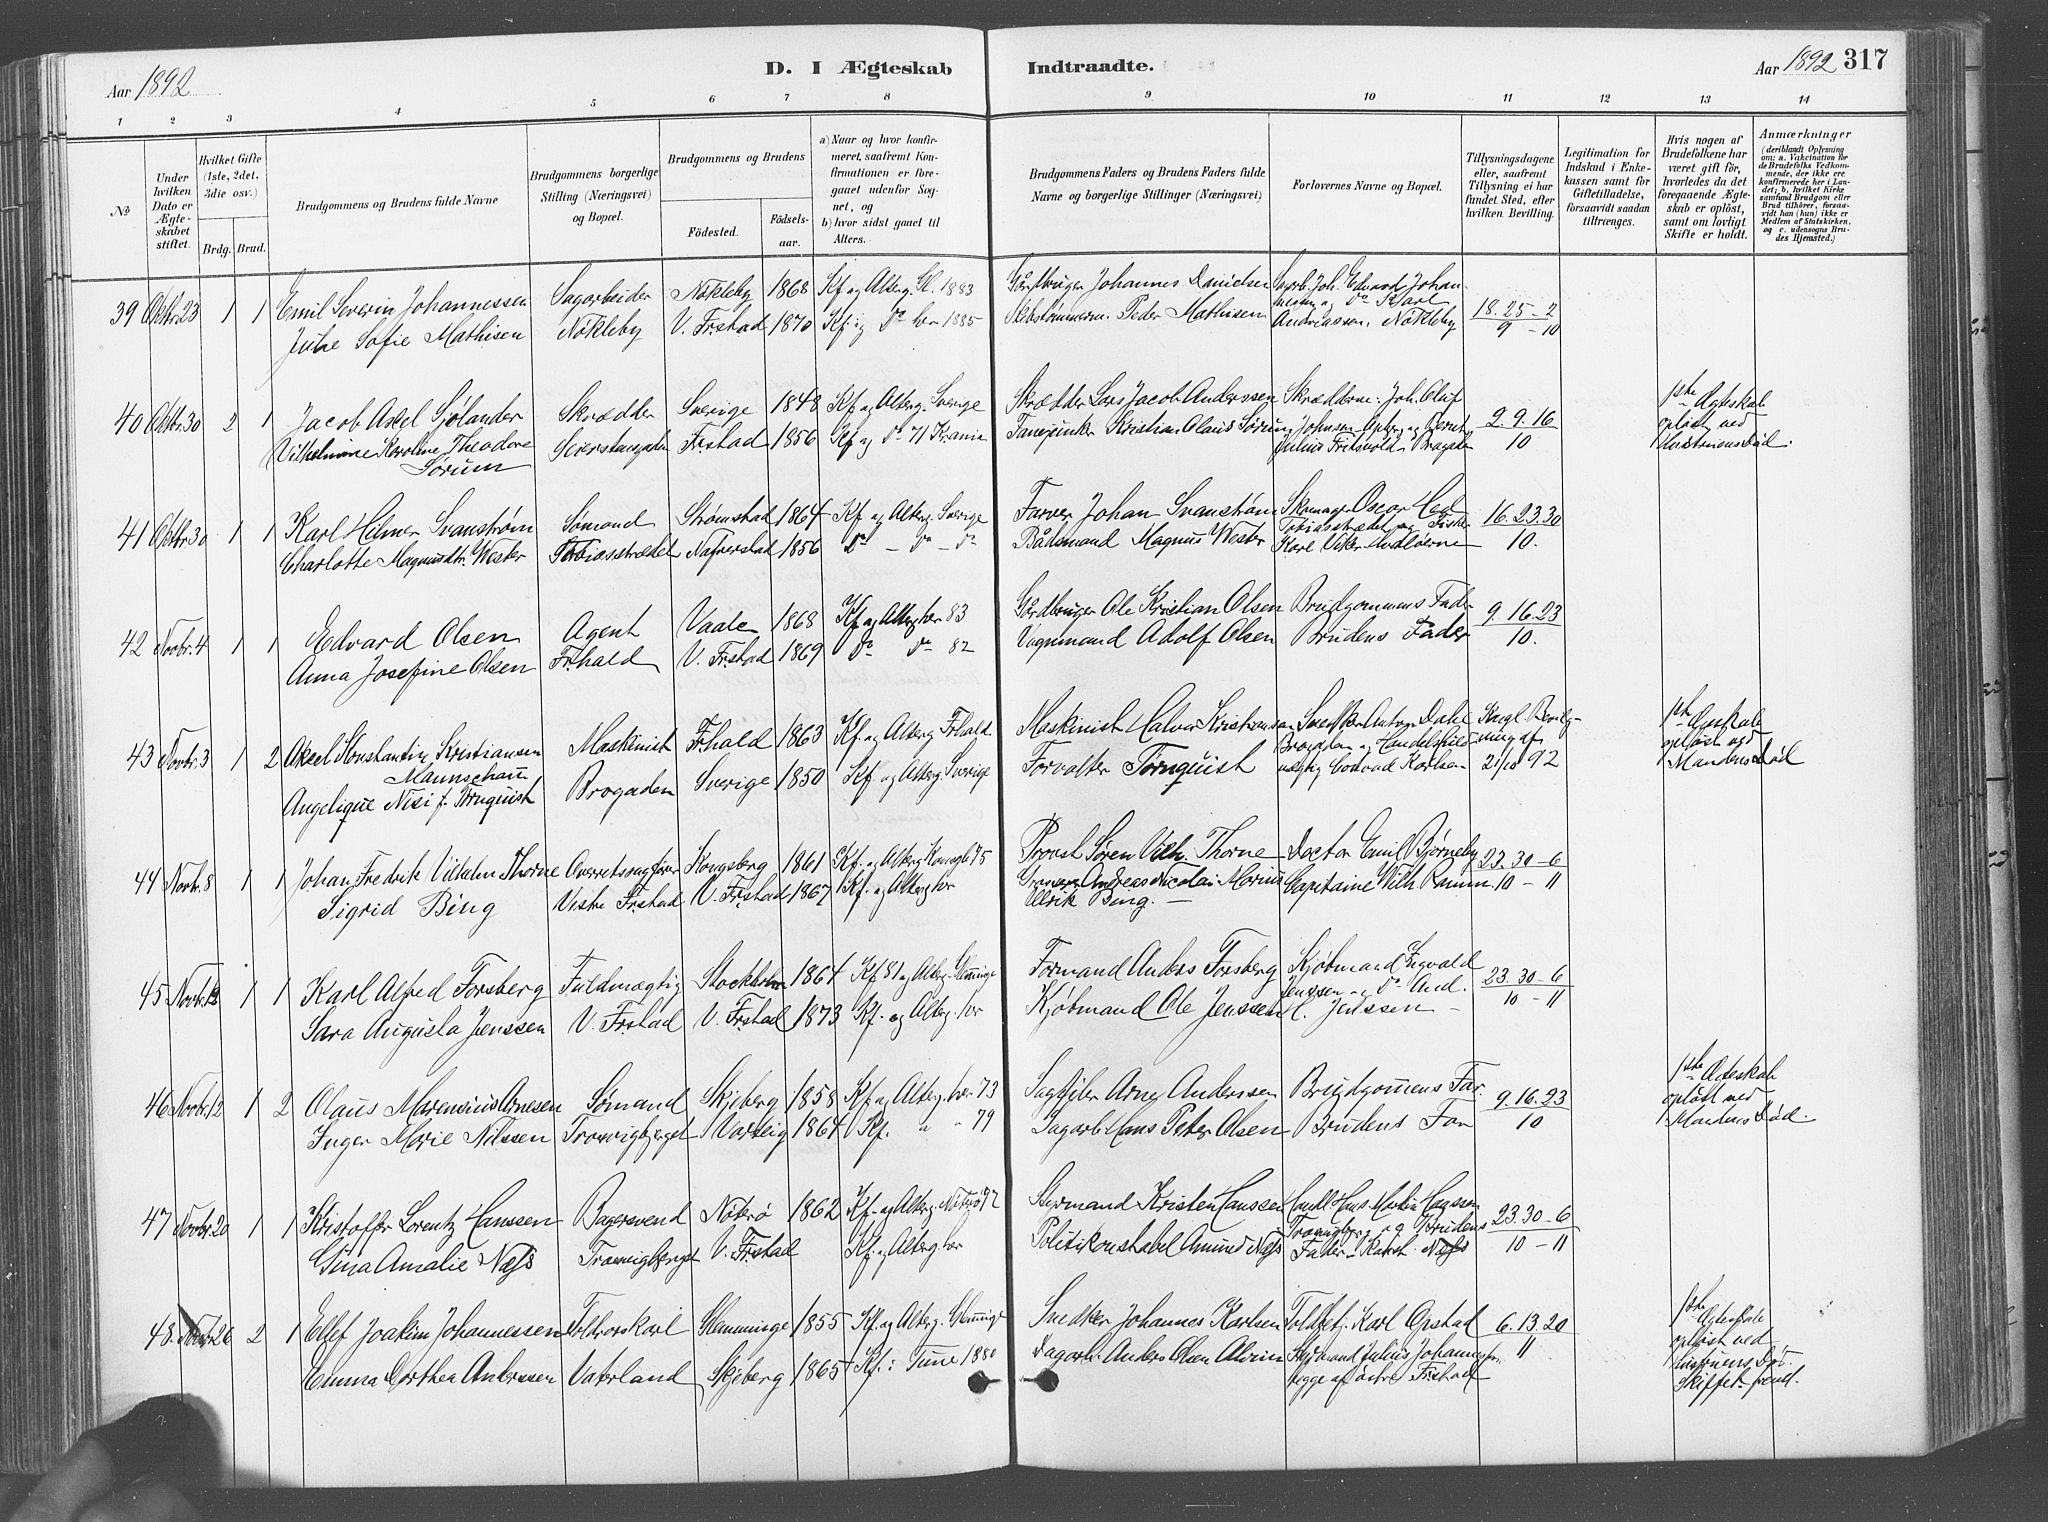 Aar 1892
D. I Ægteskab
Indtraadte.
Aar 1892 317
1 2 3 4 5 6 7 8 9 10 11 12 13 14
No
Under hvilken Dato er Ægteskabet stiftet.
Hvilket Gifte (1ste, 2det, 3die osv.)
Brdg. Brud.
Brudgommens og Brudens fulde Navne
Brudgommens borgerlige Stilling (Næringsvei) og Bopæl.
Brudgommens og Brudens
Fødested.
Fødselsaar.
a) Naar og hvor konfirmeret, saafremt Konfirmationen er foregaaet udenfor Sognet, og
b) hvor sidst gaaet til Alters.
Brudgommens Faders og Brudens Faders fulde Navne og borgerlige Stillinger (Næringsvei)
Forlovernes Navne og Bopæl.
Tillysningsdagene eller, saafremt Tillysning ei har fundet Sted, efter hvilken Bevilling.
Legitimation for Indskud i Enkekassen samt for Giftetilladelse, forsaavidt saadan tiltrænges.
Hvis nogen af Brudefolkene har været gift før, hvorledes da det foregaaende Ægteskab er opløst, samt om lovligt Skifte er holdt.
Anmærkninger (deriblandt Oplysning om: a. Vakcination for de Brudefolks Vedkommende, der ikke ere konfirmerede her i Landet; b. hvilket Kirkesamfund Brudgom eller Brud tilhører, forsaavidt han (hun) ikke er Medlem af Statskirken, og c. udensogns Brudes Hjemsted.)
39 Oktbr 23 1 1 Emil Severin Johannessen Sagarbeider Nøkleby 1868 Kf og Alterg. Gl. 1883 Gårdbruger Johannes Danielsen Sagarb. Joh. Edvard Johannessen og Do Karl 18. 25 - 2
Julie Sofie Mathisen Nøkleby V. Frstad 1870 Kf og Do her 1885 Skibstømmerm. Peder Mathisen Andriassen, Nøkleby 9 - 10
40 Oktbr. 30 2 1 Jacob Axel Sjølander Skrædder Sverige 1848 Kf og Alterg. Sverige Skrædder Lars Jacob Anderssen Skrædderne: Joh. Oluf 2. 9. 16 1ste Ægteskab
Vilhelmine Karoline Theodore Frstad 1856 Kf og Do 71 Krania Fanejunker Kristian Olaus Sørum Johnsen og Bernt 10 opløst ved
Sørum Julius Fritzvold Hustruens Død.
41 Oktbr 30 1 1 Karl Helmer Svanstrøm Sømand Strømstad 1864 Kf og Alterg. Sverige Farver Johan Svanstrøm Skomager Oscar Tobiasstrædet og Fisker 16. 23. 30
Charlotte Magnusdtr. Wester Tobiasstrædet Naverstad 1856 Do - Do - Do Bådsmand Magnus Wester Karl 10.
42 Novbr. 4 1 1 Edvard Olsen Agent Vaale 1868 Kf og Alterg her 83 Gårdbruger Ole Kristian Olsen Brudgommens Fader 9. 16. 23
Anna Josefine Olsen Frhald V. Frstad 1869 Do Do 82 Vognmand Adolf Olsen Brudens Fader 10.
43 Novbr. 3 1 2 Axel Konstantin Kristiansen Maskinist Frhald 1863 Kf og Alterg Frhald Maskinist Halvor Kristiansen Snedker Anton Dahl Kngl. Bevilg- 1ste Ægteskab
Brogaden og Handelsfuld- ning af opløst ved
Angelique Nisi f. Törnquist Brogaden Sverige 1850 Kf og Alterg Sverige Forvalter Törnquist mægtig Karlsen 21/10 92 Mandens Død
44 Novbr. 8 1 1 Johan Fredrik Vilhelm Thorne Overretssagfører Kongsberg 1861 Kf. og Alterg Kongsb 75 Provst Søren Vilh. Thorne Doctor Emil Bjørneby 23. 30 - 6
Sigrid Bing Vestre Frstad V. Frstad 1867 Kf. og Alterg her Andreas Nicolai Marius Capitaine Vilh. 10 - 11
Ulrik Bing.
45 Novbr. 12 1 1 Karl Alfred Forsberg Fuldmægtig Stockholm 1864 Kf 81 og Alterg. Glemminge Formand Anders Forsberg Kjøbmand Ingvald 23. 30 - 6
Jenssen - Do And.
Sara Augusta Jenssen V. Frstad V. Frstad 1873 Kf. og Alterg. her Kjøbmand Ole Jenssen H. Jenssen 10 - 11
46 Novbr. 12 1 2 Olaus Marensius Arnesen Sømand Skjeberg 1858 Kf og Alterg. her 73 Sagfiler Arne Anderssen Brudgommens Far. 9. 16. 23 1ste Ægteskab
opløst ved
Inger Marie Nilssen Trosvigberget Varteig 1864 Kf. " " 79 Sagarb. Hans Peter Olsen Brudens Far 10 Mandens Død.
47 Novbr. 20 1 1 Kristoffer Lorentz Hanssen Bagersvend Nøtrø 1862 Kf. og Alterg. Nøtrø 92 Styrmand Kristen Hanssen Handl. Hans Martin Hanssen 23. 30 - 6
Trosvigberg og Brudens
Gina Amalie Næss Trosvigberget V. Frstad Kf. og Alterg her Politikonstabel Amund Næss Fader Konst. Næss 10 - 11
48. Novbr 26 2 1 Ellef Joakim Johannessen Toldrorskarl Glemminge 1855 Kf. og Alterg. Glemminge Snedker Johannes Karlsen Toldbetj. Karl Ørstad 6. 13. 20 1ste Ægteskab
opløst ved
Emma Dorthea Anderssen Vaterland Skjeberg 1865 Kf. i Tune 1880 Dagarb. Anders Olsen Julius Johannessen 11 Hustruens Død
begge af østre Frstad Skiftet